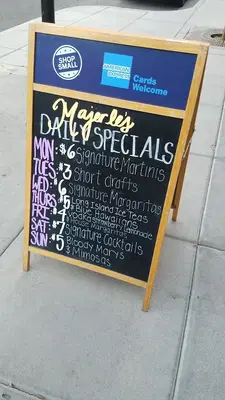 SHOP
SMALL
AMERICAN
EXPRESS
Cards
Welcome
Majerle's
DAILY SPECIALS
MON: $6 Signature Martinis
TUES: $3 Short drafts
WED: $6 Signature Margaritas
THURS: $5 Long Island Ice Teas
& Blue Hawaiians
FRI: $4 Vodka Strawberry Lemonade
Margaritas
SAT: $7 Signature Cocktails
SUN: $5 Bloody Marys
& Mimosas